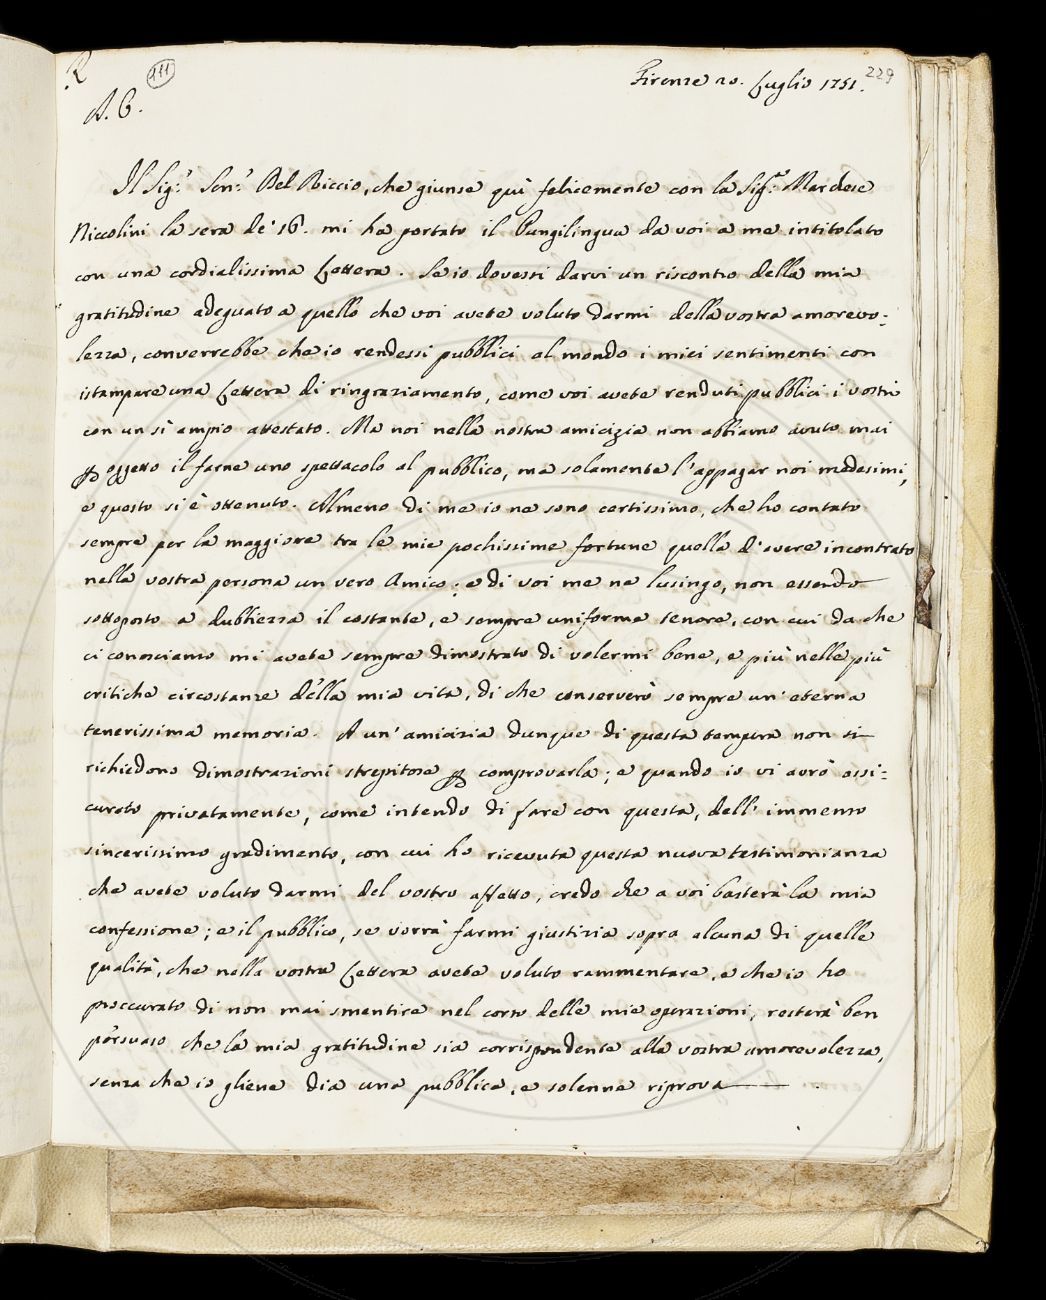 R
111
229
A. C.
Firenze 20. Luglio 1751.
Il Sig.r Sen.r Del Riccio, che giunse quì felicemente con la Sig.ra Marchese
Niccolini la sera de' 16. mi ha portato il Pungilingua da voi a me intitolato
con una cordialissima Lettera. Se io dovessi darvi un riscontro della mia
gratitudine adeguato a quello che voi avete voluto darmi della vostra amorevo-
lezza, converrebbe che io rendessi pubblici al mondo i miei sentimenti con
istampare una Lettera di ringraziamento, come voi avete renduti pubblici i vostri
con un sì ampio attestato. Ma noi nella nostra amicizia non abbiamo avuto mai
per oggetto il farne uno spettacolo al pubblico, ma solamente l'appagar noi medesimi,
e questo si è ottenuto. Almeno di me io ne sono certissimo, che ho contato
sempre per la maggiore tra le mie pochissime fortune quella d'avere incontrato
nella vostra persona un vero Amico; e di voi me ne lusingo, non essendo
sottoposto a dubbiezza il costante, e sempre uniforme tenore, con cui da che
ci conosciamo mi avete sempre dimostrato di volermi bene, e più nelle più
critiche circostanze della mia vita, di che conserverò sempre un' eterna
tenerissima memoria. A un' amicizia dunque di questa tempera non si
richiedono dimostrazioni strepitose per comprovarla; e quando io vi avrò assi-
curato privatamente, come intendo di fare con questa, dell' immenso
sincerissimo gradimento, con cui ho ricevuta questa nuova testimonianza
che avete voluto darmi del vostro affetto, credo che a voi basterà la mia
confessione; e il pubblico, se vorrà farmi giustizia sopra alcuna di quelle
qualità, che nella vostra Lettera avete voluto rammentare, e che io ho
proccurato di non mai smentire nel corso delle mie operazioni, resterà ben
persuaso che la mia gratitudine sia corrispondente alla vostra amorevolezza,
senza che io gliene dia una pubblica, e solenne riprova